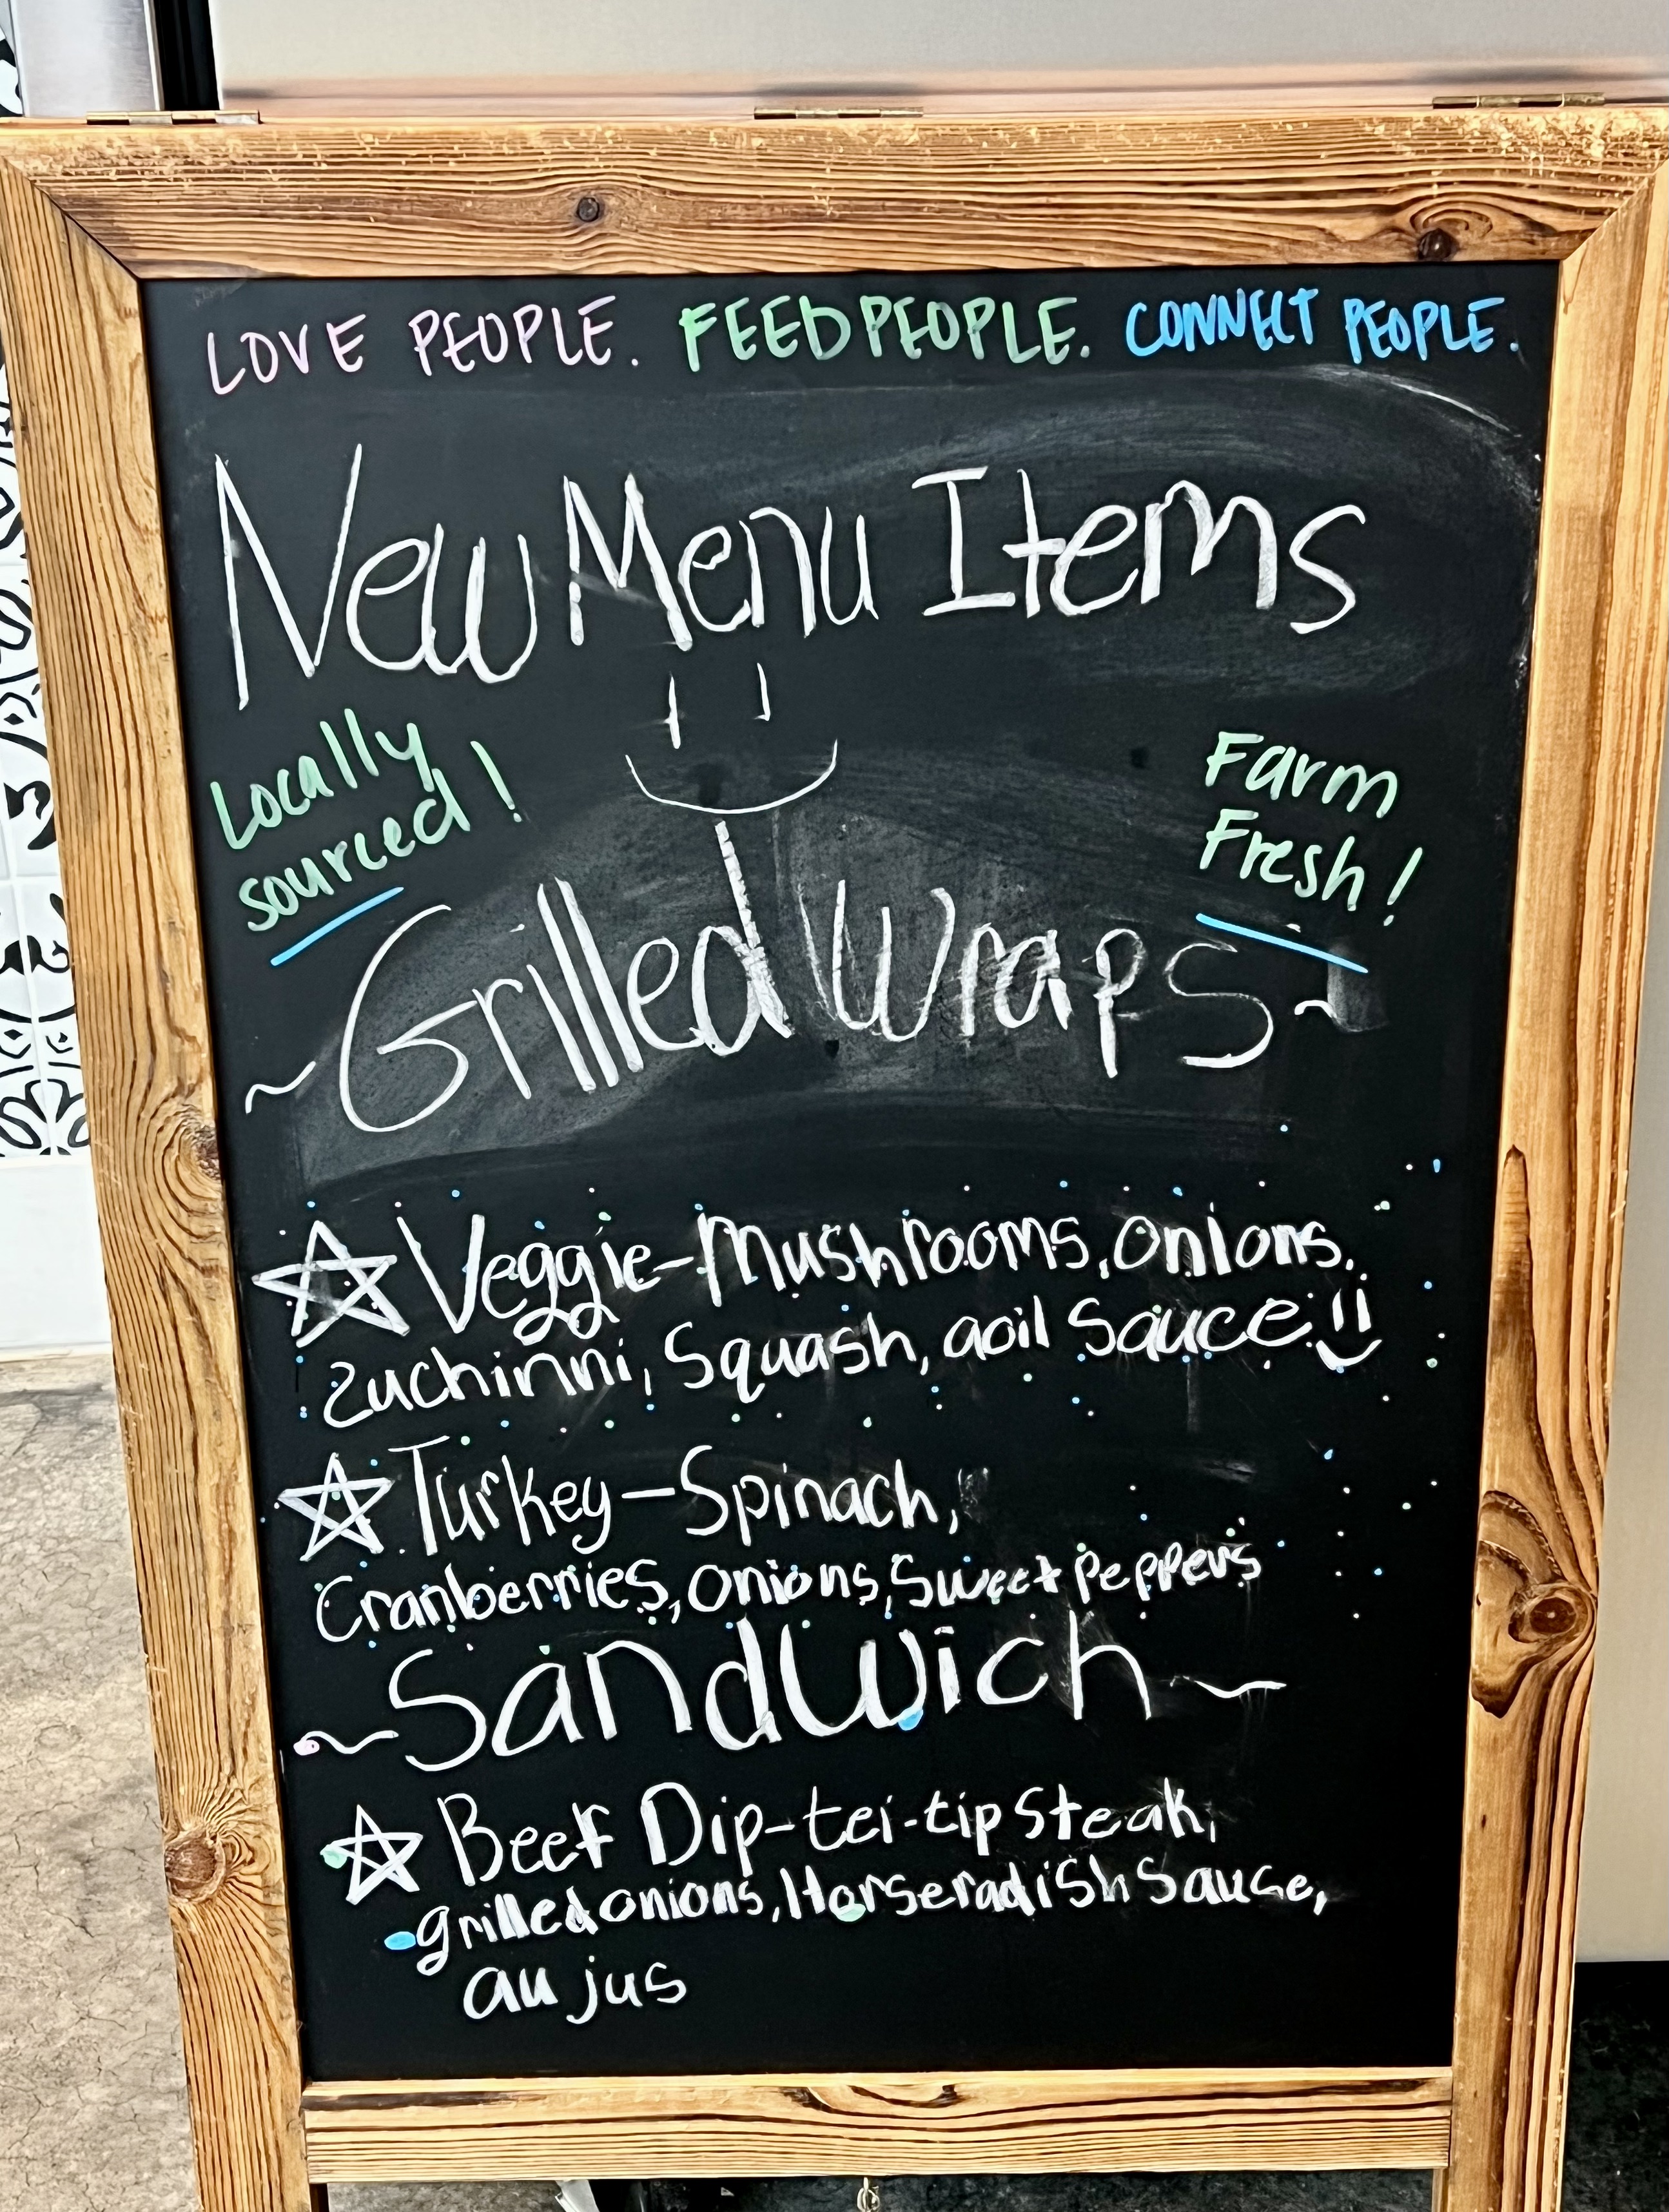 LOVE PEOPLE. FEED PEOPLE. CONNECT PEOPLE.
New Menu Items
Locally
sourced!
Farm
Fresh!
~Grilled Wraps~
☆Veggie-Mushrooms, Onions,
Zuchinni, Squash, aoil Sauce
☆Turkey-Spinach,
Cranberries, Onions, Sweet Peppers
~Sandwich~
☆Beef Dip-tei-tip steak,
grilled onions, Horseradish Sauce,
au jus